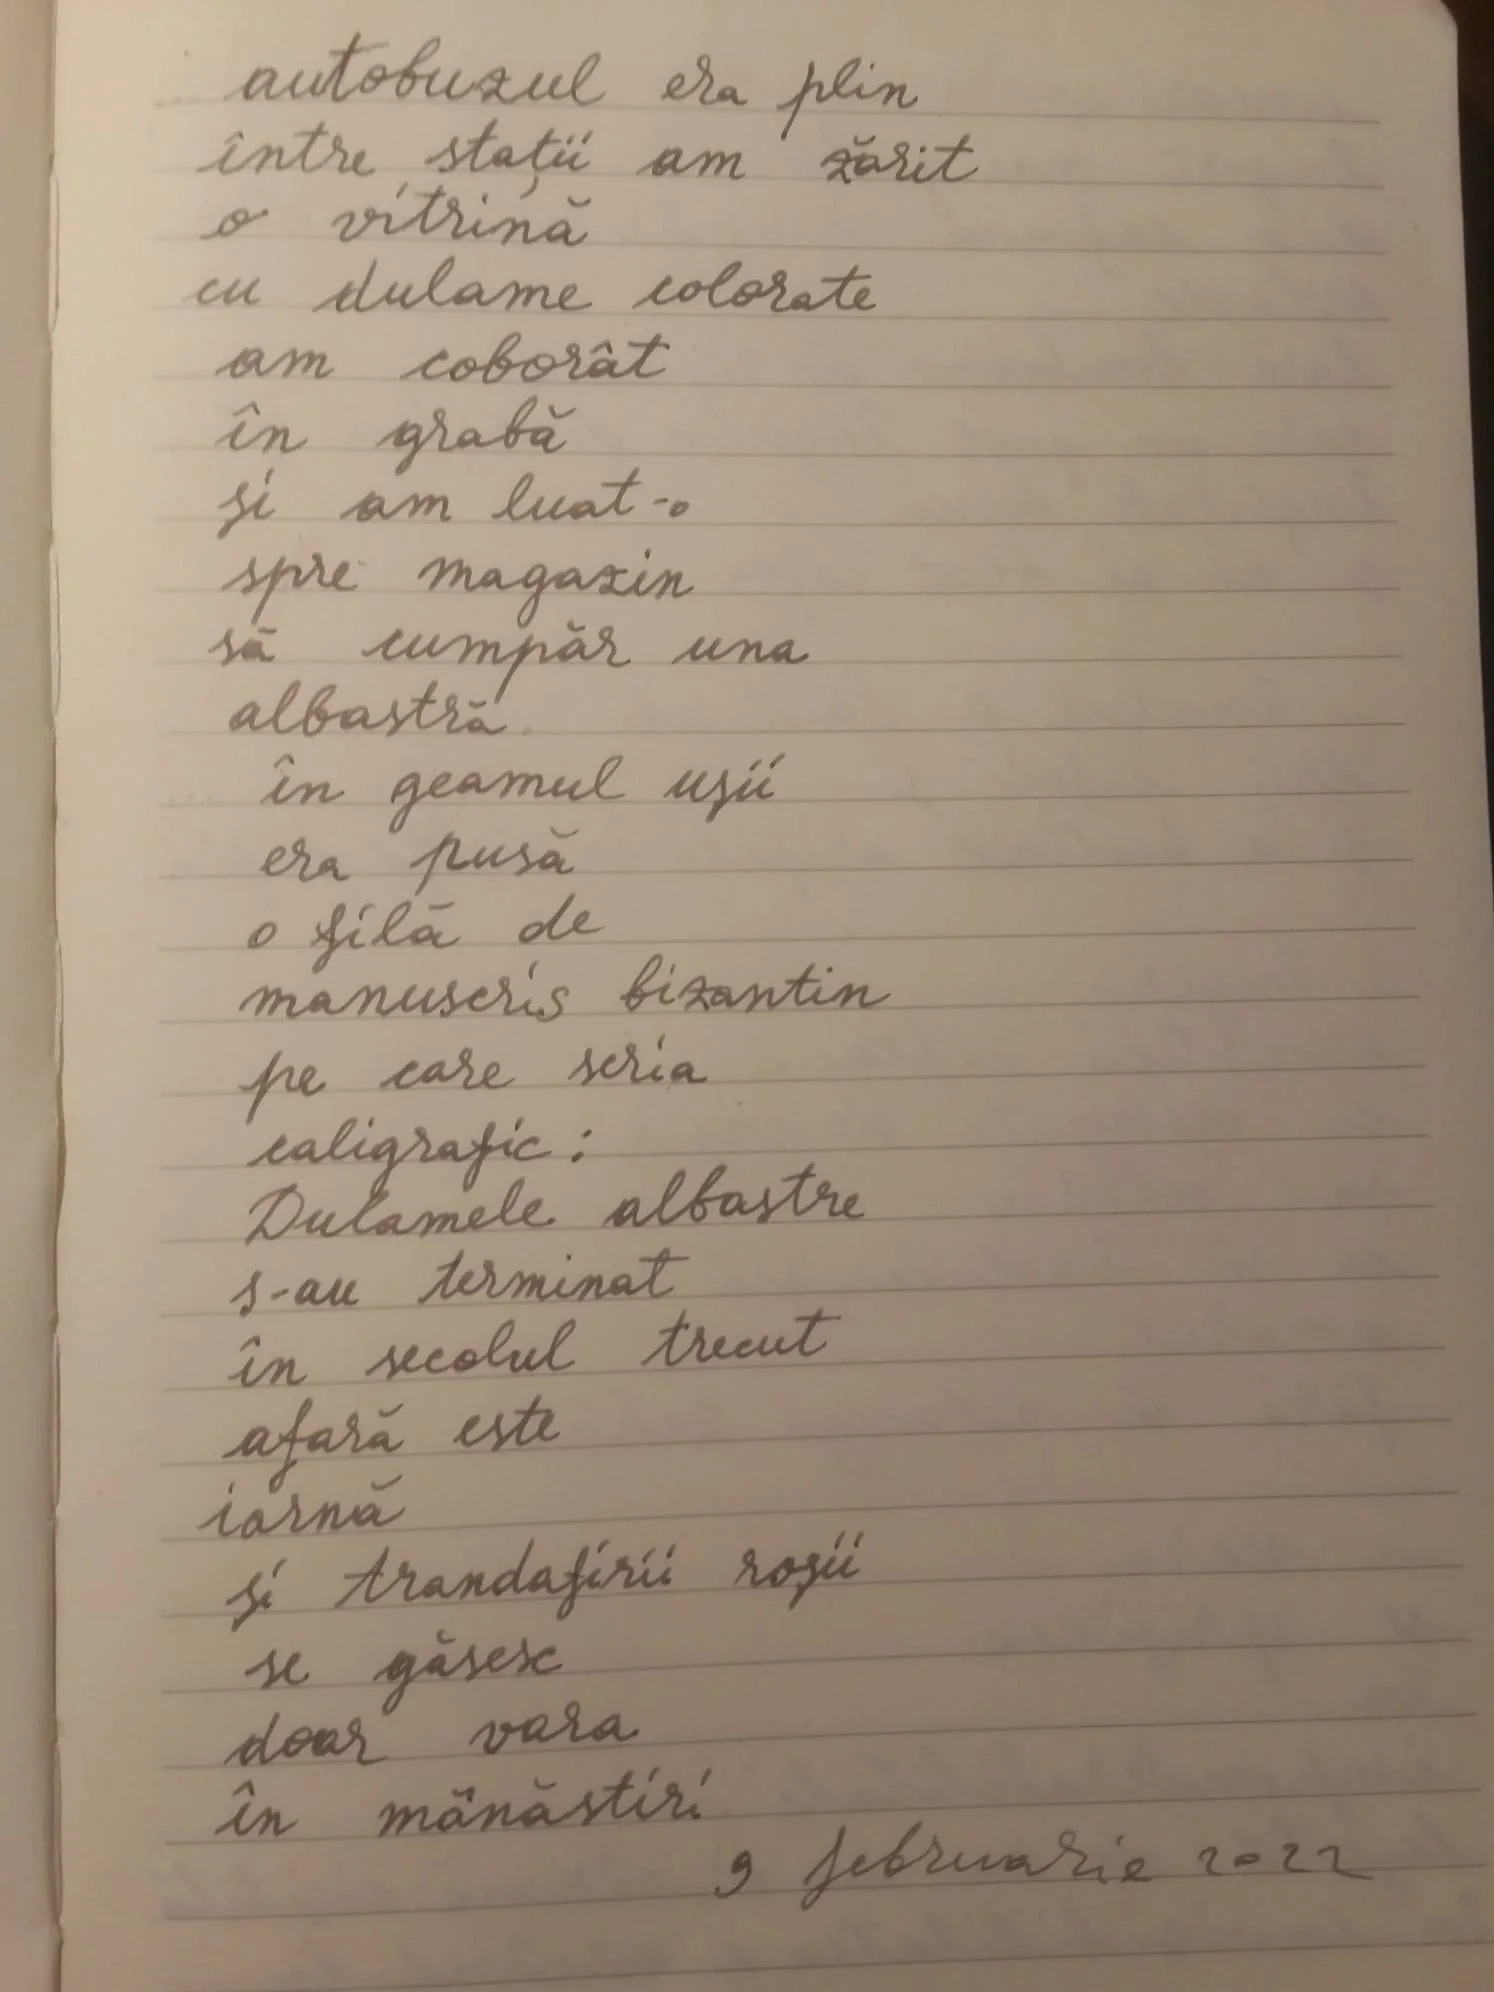 autobuzul era plin
între stații am zărit
o vitrină
cu dulame colorate
am coborât
în grabă
și am luat-o
spre magazin
să cumpăr una
albastră
în geamul ușii
era pusă
o filă de
manuscris bizantin
pe care scria
caligrafic:
Dulamele albastre
s-au terminat
în secolul trecut
afară este
iarnă
și trandafirii roșii
se găsesc
doar vara
în mănăstiri
9 februarie 2022